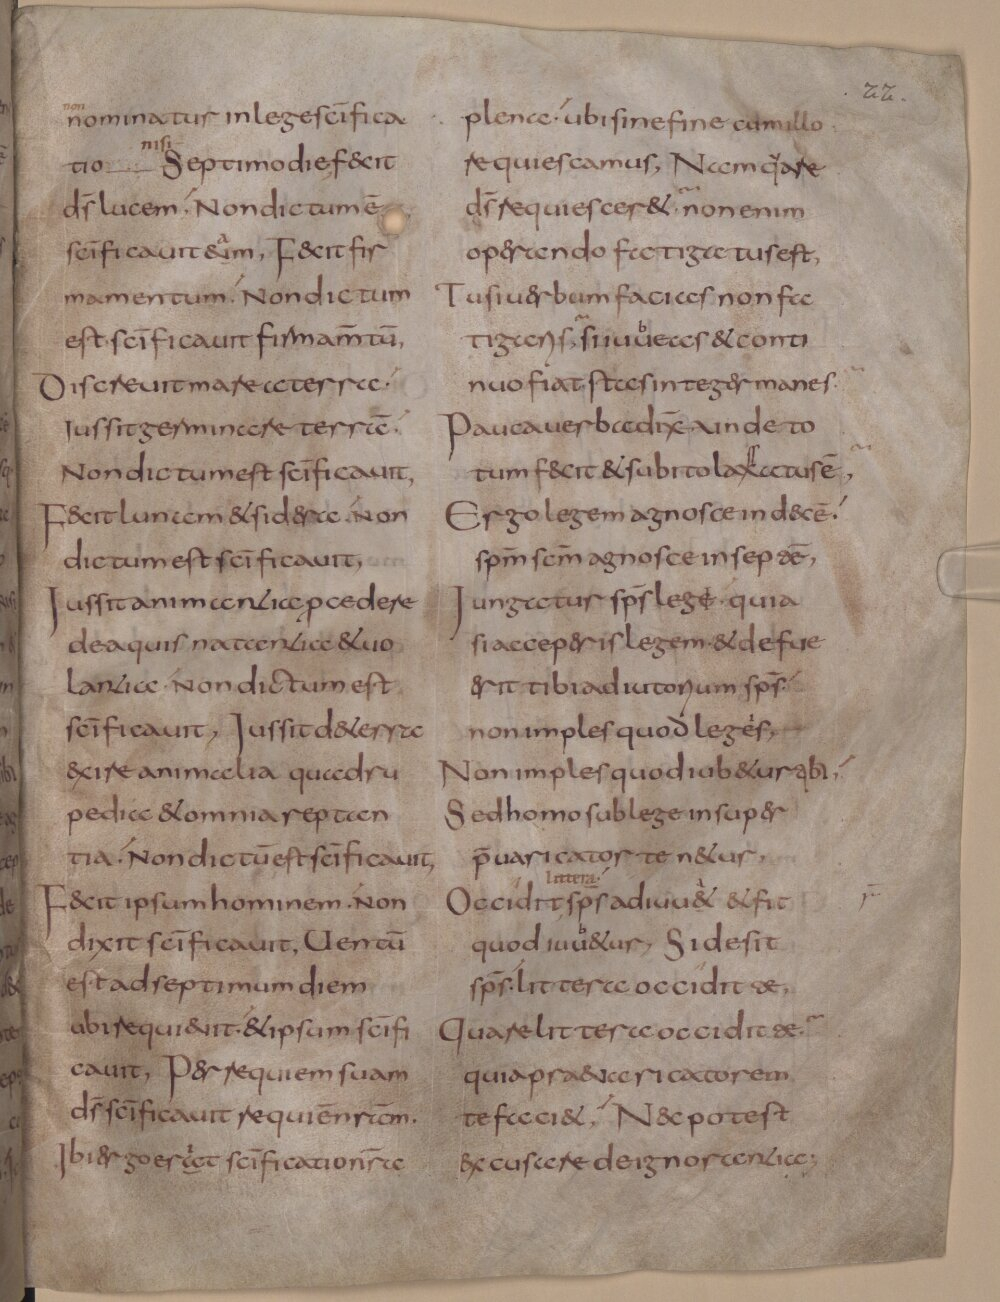 22.
non
nominatur in lege sc̄ifica
tio nisi Septimo die, fecit
d̄s lucem. Non dictum ē
sc̄ificauit eam, Fecit fir
mamentum. Non dictum
est sc̄ificauit firmam̄tū,
Discreuit mare a terra.
iussit germinare terrā.
Non dictum est sc̄ificauit,
Fecit lunam & sidera. Non
dictum est sc̄ificauit,
Iussit animantia ꝓcedere
de aquis natantia & uo
lantia. Non dictum est
sc̄ificauit, Iussit de terra
exire animalia quadru
pedia & omnia reptan
tia. Non dictū est sc̄ificauit,
Fecit ipsum hominem. Non
dixit sc̄ificauit, Uentū
est ad septimum diem
ubi requieuit. & ipsum sc̄ifi
cauit, Per requiem suam
d̄s sc̄ificauit requiēnr̄am.
Ibi ergo erit sc̄ificatio nr̄a
plena. ubi sine fine cum illo
requiescamus, Nam quare
d̄s requiesceret. non enim
operando fatigatus est,
Tu si uerbum facias non fa
tigaris, si iubeas & conti
nuo fiat. stas integer manes.
Pauca uerba dix̄ unde to
tum fecit & subito laxatus ē,
Ergo legem agnosce in decē.
sp̄m sc̄m agnosce in septē,
Iungatur sp̄s legi. quia
si acceperis legem. & defue
rit tibi adiutorium sp̄s.
non imples quod legis,
Non imples quod iubetur tibi,
Sed homo sub lege insuper
p̄uaricator tenetur,
littera.
Occidit sp̄s adiuuet & fit
quod iubetur, Si desit
sp̄s. littera occidit te,
Quare littera occidit te.
quia praeuaricatorem
te faciet, Nec potest
excusare de ignorantia;